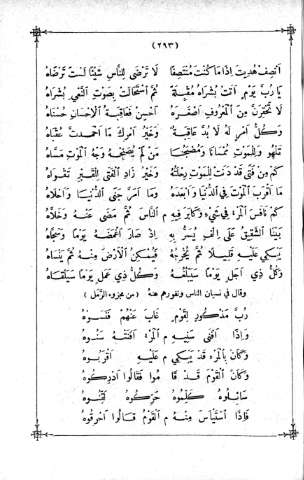 (٢٩٣)
أنصف هُديت إذا ما كنت منتصفا لا ترضى للناس شيئا لست ترضاه
يا رب يوم أتت بشراه مقبلة ثم استحالت بصوت النعي بشراه
لا تحقرن من المعروف أصغره أحسن فعاقبة الإحسان حسناه
وكل أمر له لا بد عاقبة وخير أمرك ما أحمدت عقباه
تلهو وللموت ممسانا ومصبحنا من لم يصبحه وجه الموت مساه
كم من فتى قد دنت للموت رحلته وخير زاد الفتى للقبر تقواه
ما أقرب الموت في الدنيا وأبعده وما أمر جنى الدنيا وأحلاه
كم نافس المرء في شيء وكايد فيه م الناس ثم مضى عنه وخلاه
بينا الشقيق على إلف يسر به إذ صار أغمضه يوما وسجاه
يبكي عليه قليلا ثم يخرجه فيمكن الأرض منه ثم ينساه
وكل ذي أجل يوما سيبلغه وكل ذي عمل يوما سيلقاه
وقال في نسيان الناس ونفورهم عنه (من مجزوء الرمل)
رب مذكور لقوم غاب عنهم فنسوه
وإذا أفنى سنيه م المرء أفنته سنوه
وكأن بالمرء قد يبكي م عليه أقربوه
وكأن القوم قد قا موا فقالوا أدركوه
سائلوه كلموه حركوه لقنوه
فإذا استيأس منه م القوم قالوا أحرفوه